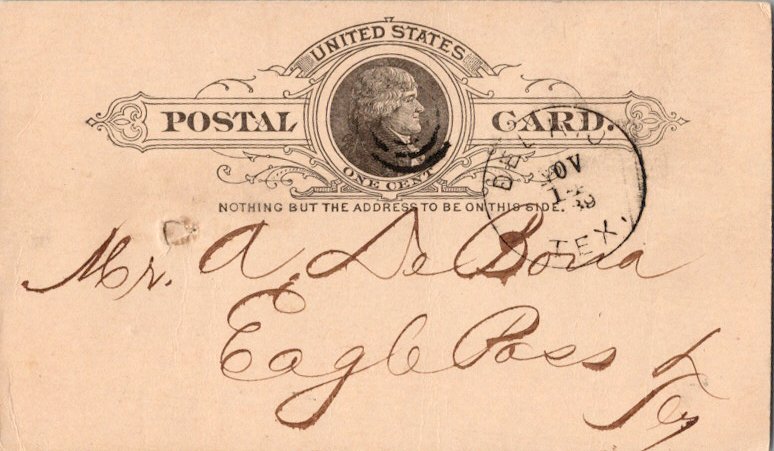 UNITED STATES
POSTAL CARD.
ONE CENT
NOTHING BUT THE ADDRESS TO BE ON THIS SIDE.
NOV
TEX.
Mr. A. De Bona
Eagle Pass
Tex